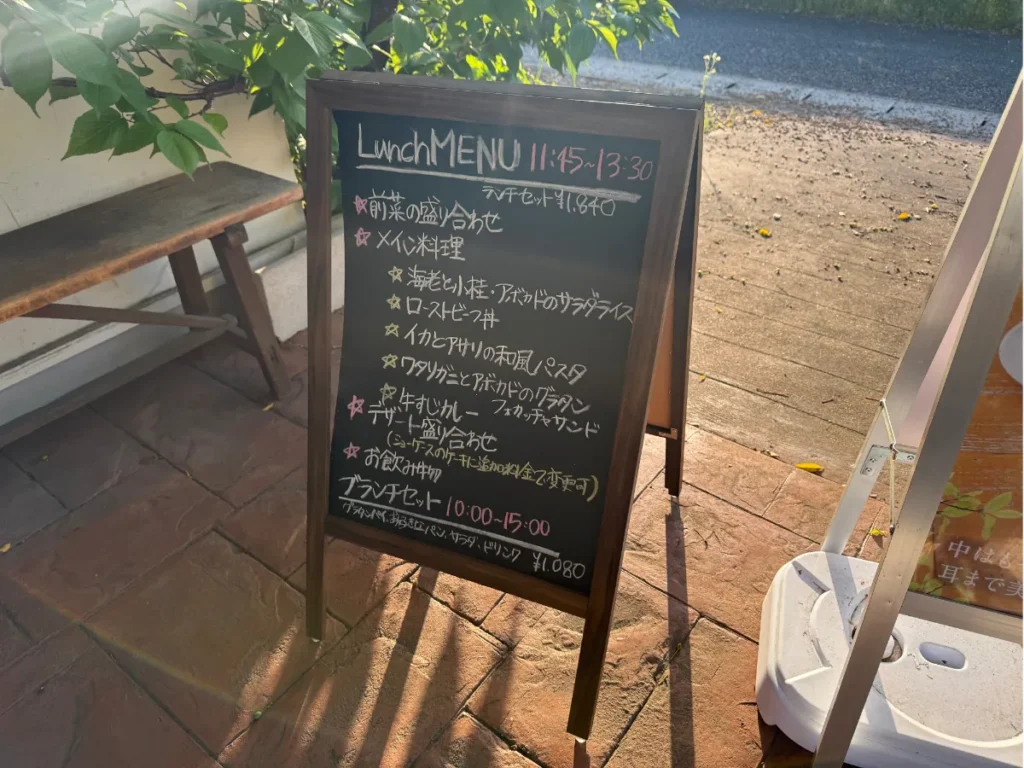 LunchMENU 11:45~13:30
ランチセット ¥1.840
☆前菜の盛り合わせ
☆メイン料理
☆海老と小柱・アボカドのサラダライス
☆ローストビーフ丼
☆イカとアサリの和風パスタ
☆ワタリガニとアボカドのグラタン
フォカッチャサンド
☆牛すじカレー
☆デザート盛り合わせ
(ショーケースのケーキに追加料金で変更可)
☆お飲み物
ブランチセット 10:00~15:00
パン、サラダ、ドリンク
¥1.080
中は
耳まで